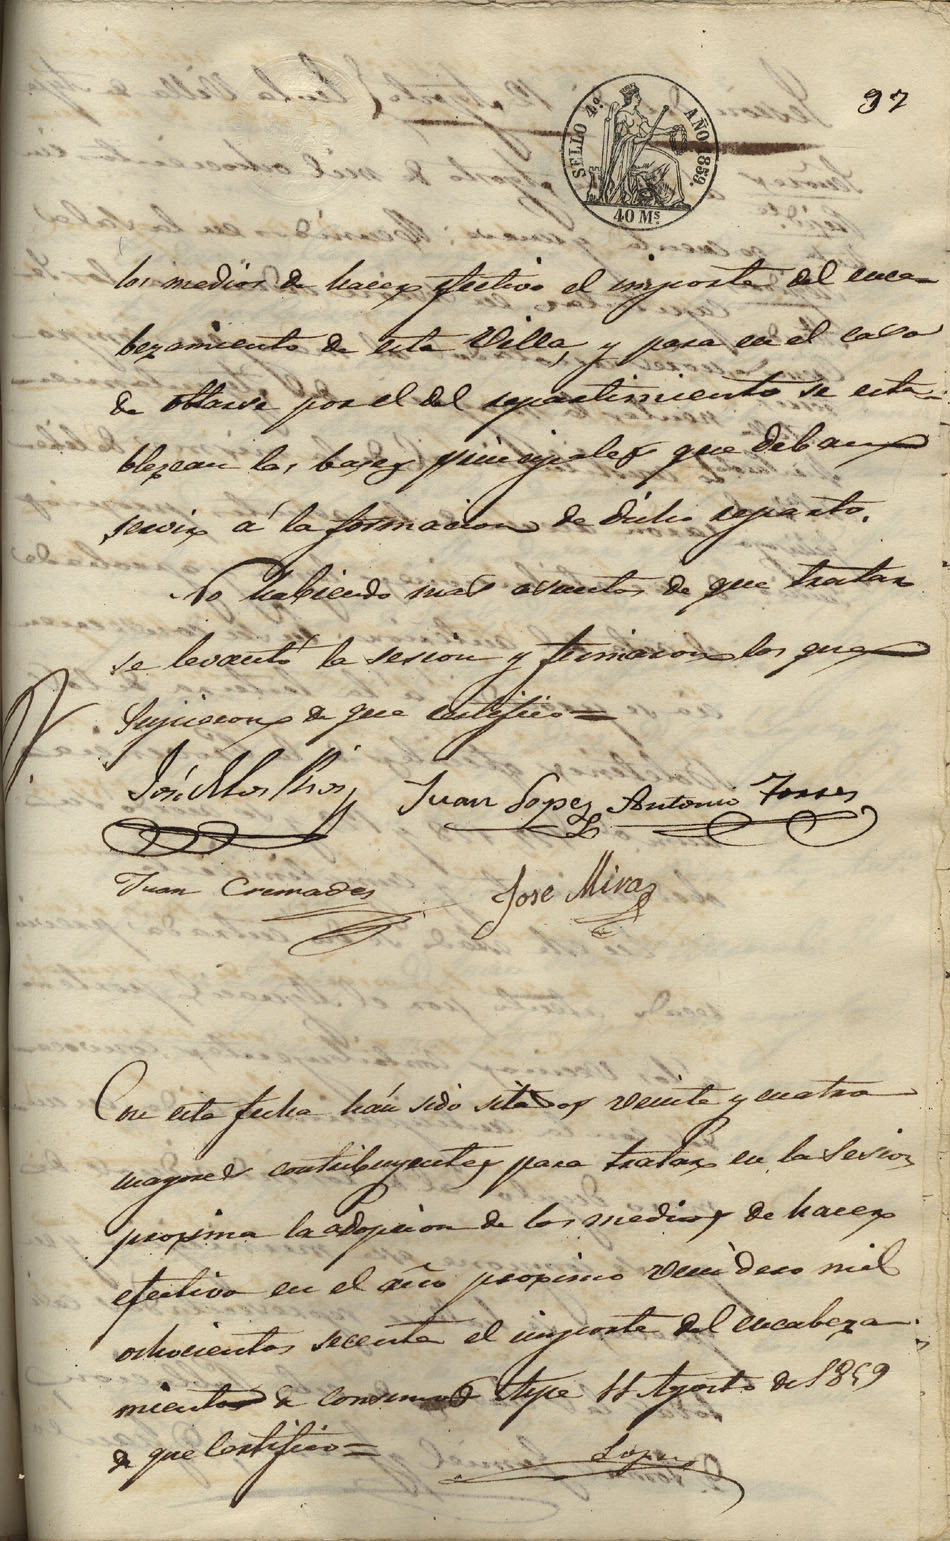 97
SELLO 4.º AÑO 1859.
40 Ms.
los medios de hacer efectivo el importe del enca-
bezamiento de esta Villa, y para en el caso
de obtarse por el del repartimiento se esta-
blezcan las bases principales que deban
servir á la formacion de dicho reparto.
No habiendo mas asuntos de que tratar
se levantó la sesion y firmaron los que
supieron de que certifico=
Juan Lopez Antonio Torres
Juan Cremades Jose Mira
Con esta fecha hán sido sitados veinte y cuatro
mayores contribuyentes para tratar en la Sesion
proxima la adopcion de los medios de hacer
efectivo en el año proximo venidero mil
ochocientos secenta el importe del encabeza-
miento de consumos Aspe 11 Agosto de 1859
de que Certifico=
Lopez